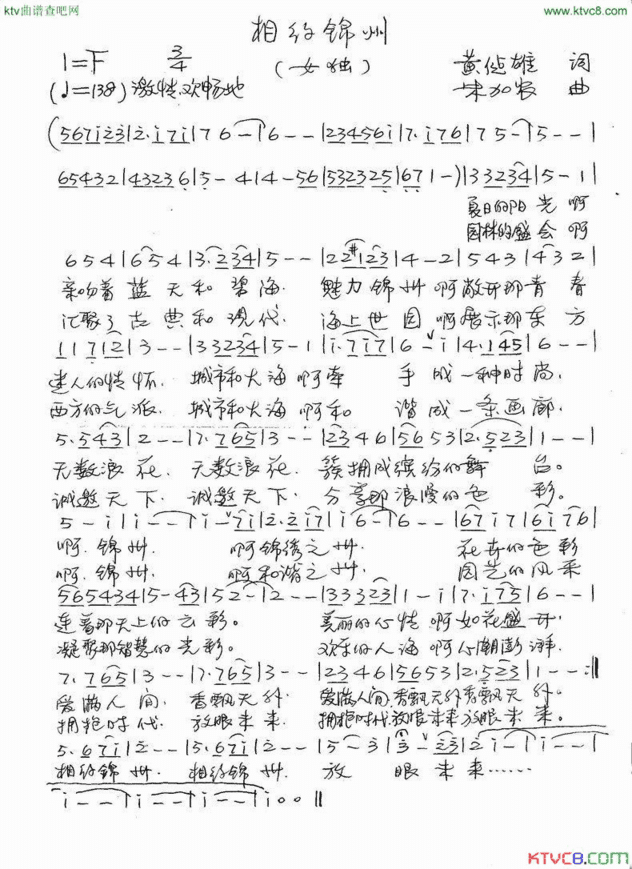 ktv曲谱查吧网 www.ktvc8.com
相约锦州
1=F 3/4 (女独) 黄 雄 词
(♩=138) 激情、欢畅地 宋加农 曲
(567i23|2·i7i|76-|6--|23456i|7·i76|75-|5--|
65432|43236|5-4|4-56|532325|671-)|33234|5-1|
夏日的阳光啊
园林的盛会啊
654|654|3·234|5--|22#123|4-2|543|432|
亲吻着蓝天和碧海. 魅力锦州啊敞开那青春
汇聚了古典和现代. 海上世园啊展示那东方
11712|3--|33234|5-1|i·7i7|6-i|4·145|6--|
迷人的情怀. 城市和大海啊牵手成一种时尚.
西方的气派. 城市和大海啊和谐成一条画廊.
5·543|2--|7·765|3--|2346|5653|2·523|1--|
无数浪花. 无数浪花. 簇拥成缤纷的舞台。
诚邀天下. 诚邀天下. 分享那浪漫的色彩。
5-i|i--|i-7i|2·2i7|i6-|6--|67i7|6i76|
啊.锦州. 啊锦绣之州. 花卉的色彩
啊.锦州. 啊和谐之州. 园艺的风采
565434|5-43|52-|2--|33323|1-i|7·i75|6--|
连着那天上的云彩。 美丽的心情啊如花盛开.
凝聚那智慧的光彩。 欢乐的人海啊心潮澎湃.
7·765|3--|7·765|3--|2346|5653|2·523|1--:‖
爱满人间. 香飘天外. 爱满人间,香飘天外香飘天外.
拥抱时代. 放眼未来. 拥抱时代放眼未来放眼未来。
5·67i|2--|5·67i|2--|5-3|3-23|2i-|i--|
相约锦州. 相约锦州. 放眼未来……
i--|i--|i--|i00‖
KTVC8.COM